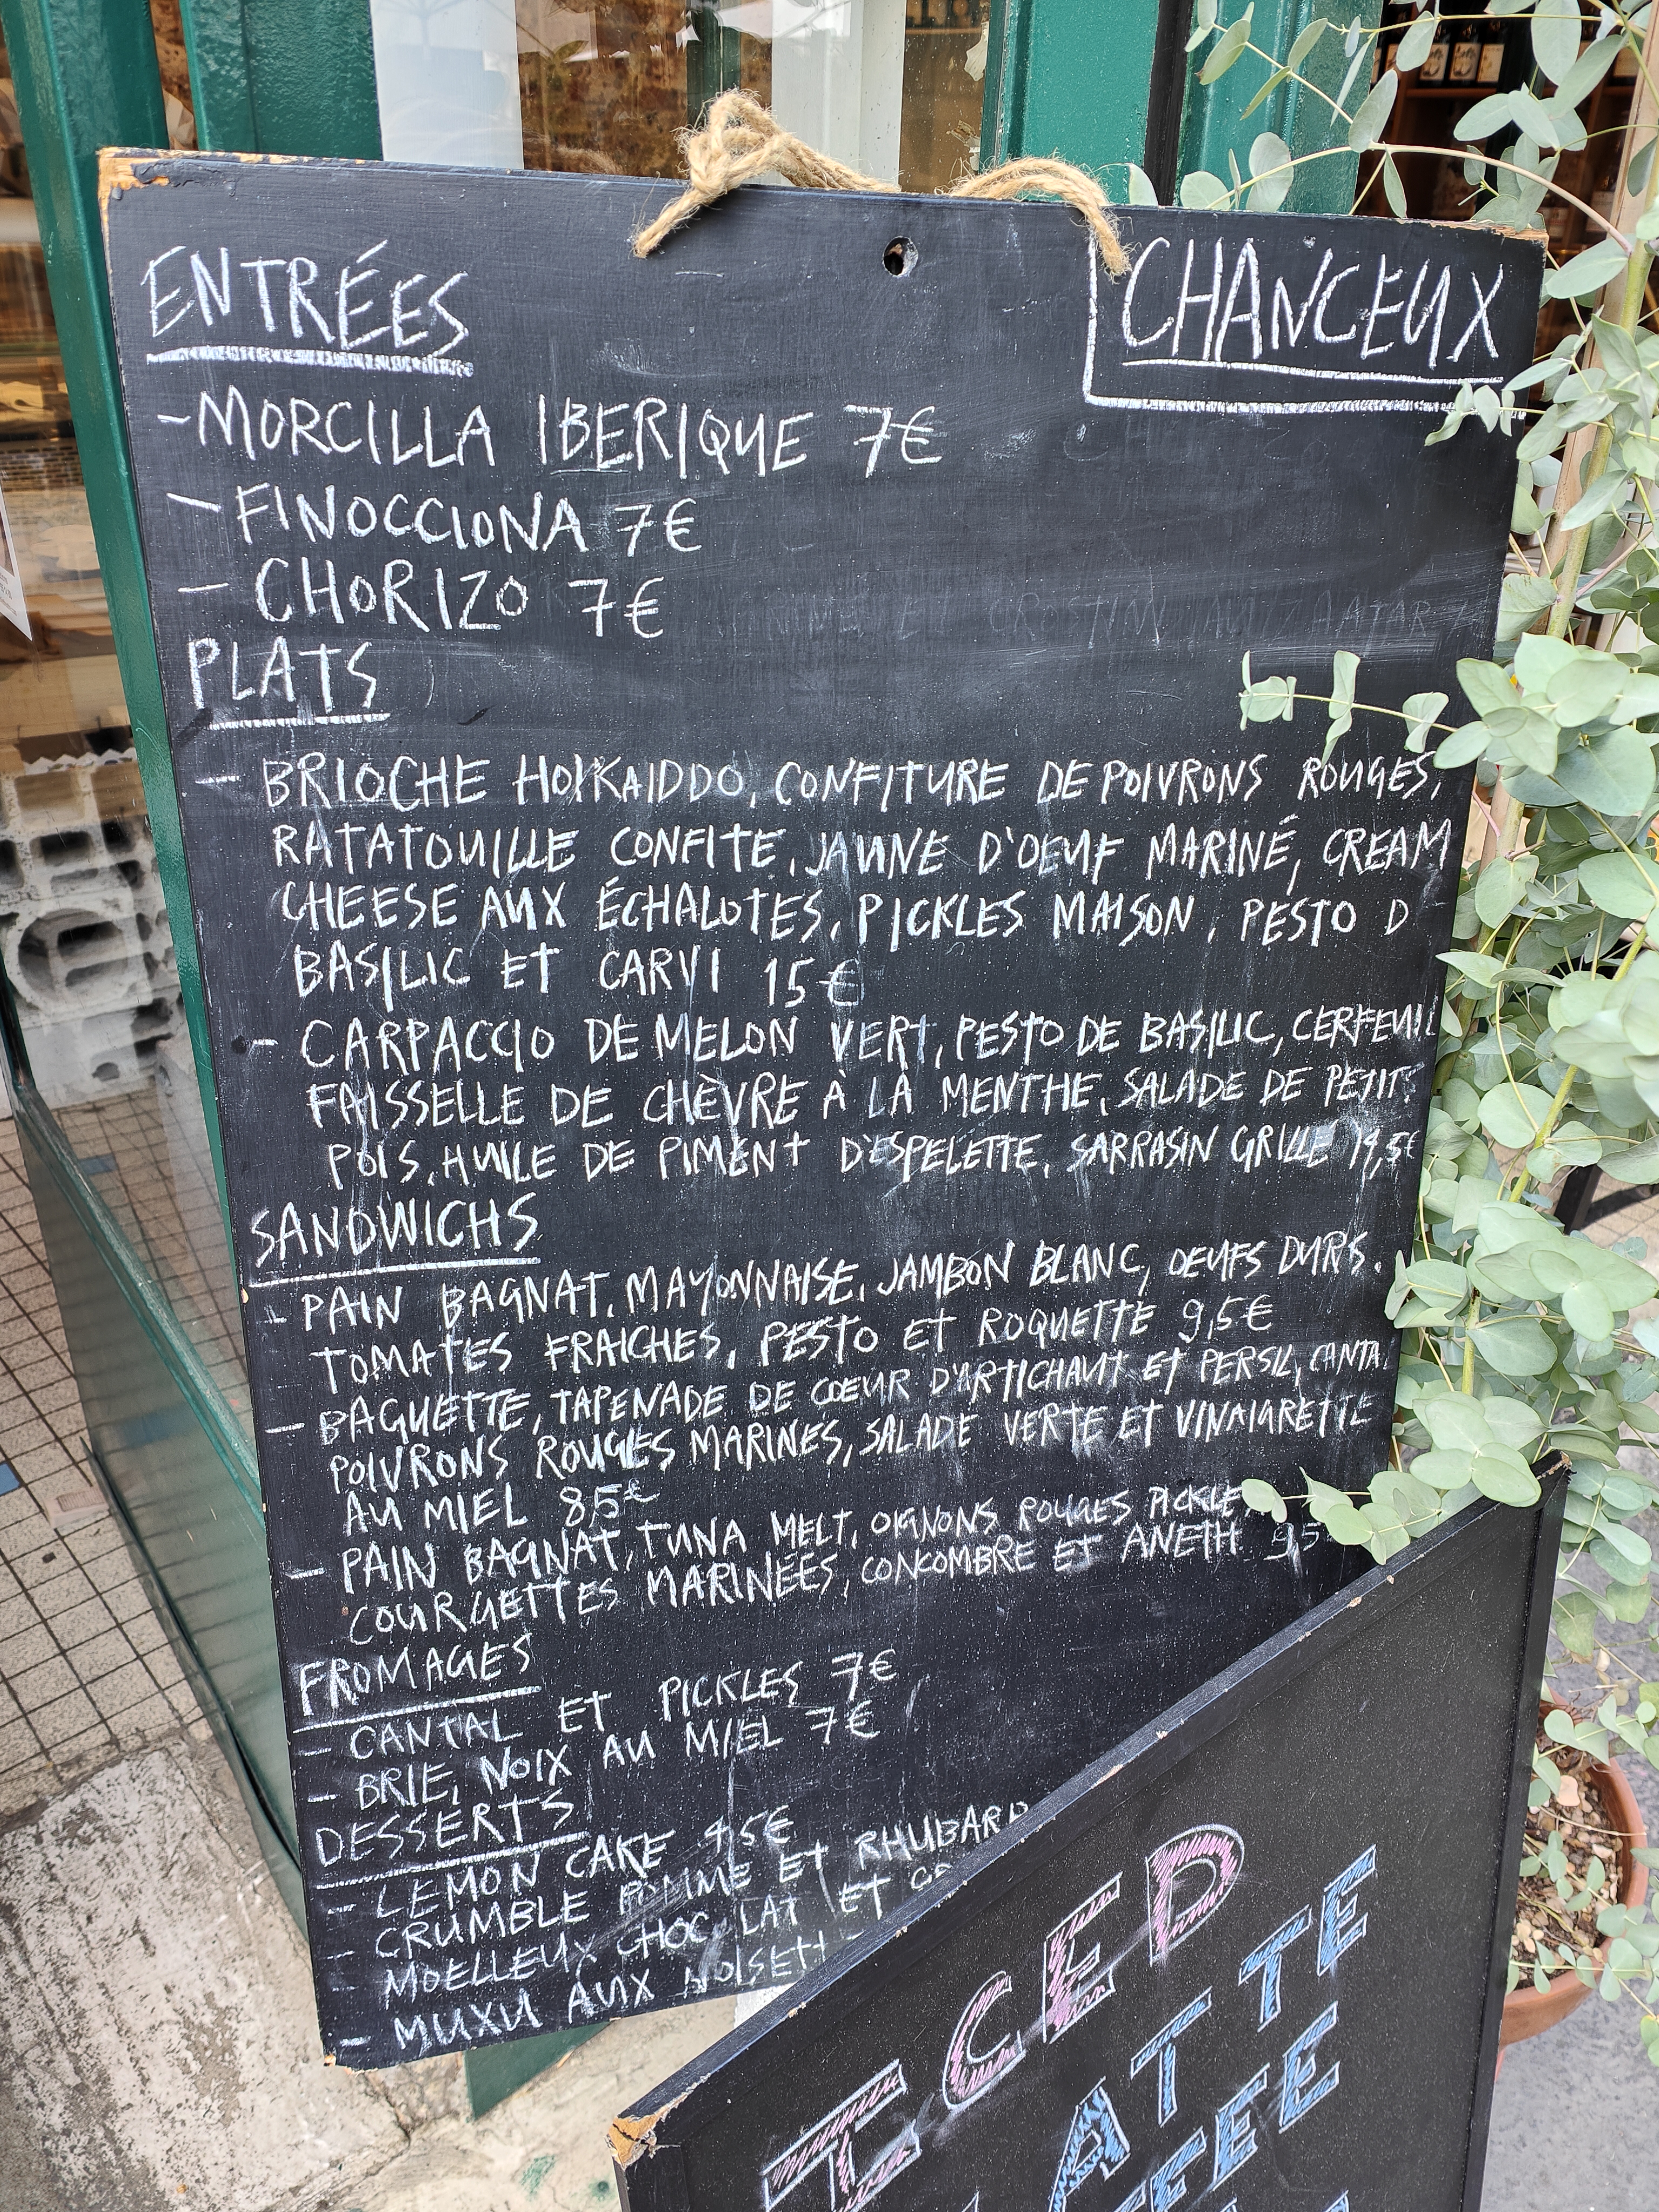 ENTRÉES
CHANCEUX
-MORCILLA IBERIQUE 7€
- FINOCCIONA 7€
- CHORIZO 7€
PLATS
- BRIOCHE HOKKAIDDO, CONFITURE DE POIVRONS ROUGES,
RATATOUILLE CONFITE, JAUNE D'OEUF MARINÉ, CREAM
CHEESE AUX ÉCHALOTES, PICKLES MAISON, PESTO D
BASILIC ET CARVI 15€
- CARPACCIO DE MELON VERT, PESTO DE BASILIC, CERFEUIL
FAISSELLE DE CHÈVRE À LA MENTHE, SALADE DE PETITS
POIS, HUILE DE PIMENT D'ESPELETTE, SARRASIN GRILLE
SANDWICHS
- PAIN BAGNAT, MAYONNAISE, JAMBON BLANC, OEUFS DURS.
TOMATES FRAICHES, PESTO ET ROQUETTE 9,5€
- BAGUETTE, TAPENADE DE COEUR D'ARTICHAUT ET PERSIL, CANTAL
POIVRONS ROUGES MARINES, SALADE VERTE ET VINAIGRETTE
AU MIEL 8,5€
- PAIN BAGNAT, TUNA MELT, OIGNONS ROUGES PICKLE
COURGETTES MARINÉES, CONCOMBRE ET ANETH 9,5
FROMAGES
- CANTAL ET PICKLES 7€
- BRIE, NOIX AU MIEL 7€
DESSERTS
- LEMON CAKE 4,5€
- CRUMBLE POMME ET RHUBARB
- MOELLEUX CHOCOLAT ET
- MUXU AUX NOISETT
ICED
LATTE